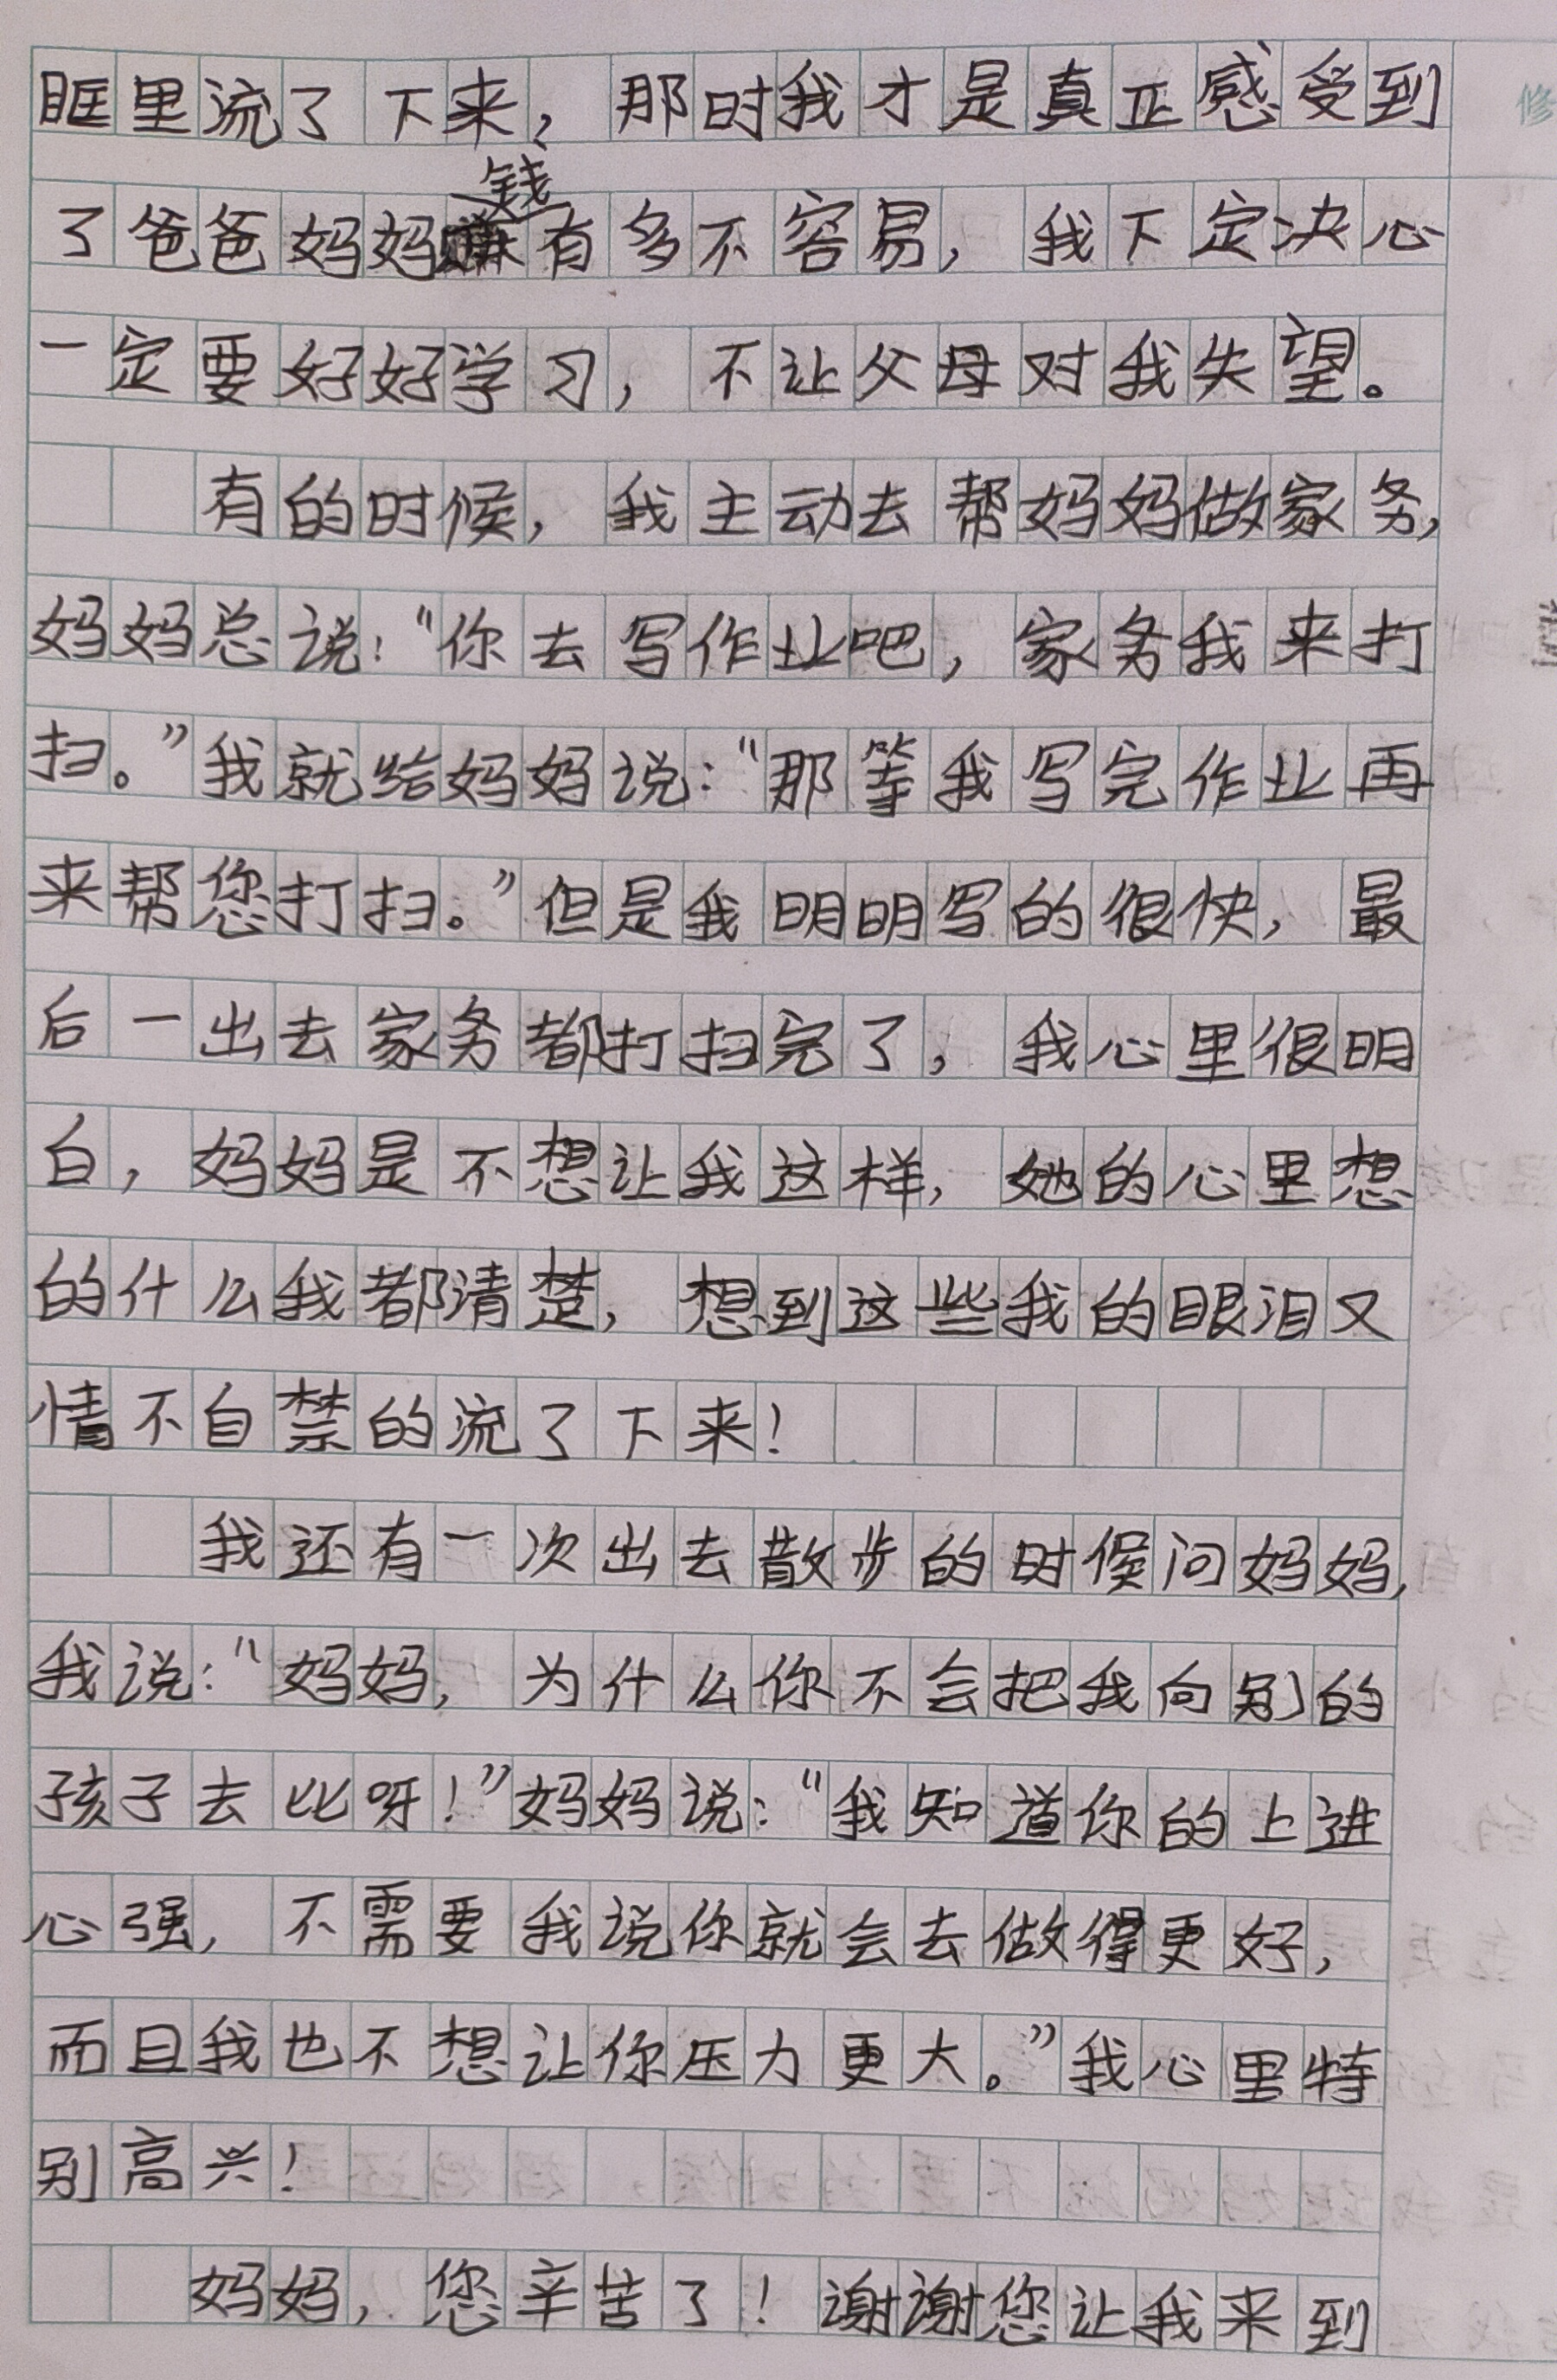 眶里流了下来，那时我才是真正感受到
了爸爸妈妈赚钱有多不容易，我下定决心
一定要好好学习，不让父母对我失望。
有的时候，我主动去帮妈妈做家务，
妈妈总说：“你去写作业吧，家务我来打
扫。”我就给妈妈说：“那等我写完作业再
来帮您打扫。”但是我明明写的很快，最
后一出去家务都打扫完了，我心里很明
白，妈妈是不想让我这样，她的心里想
的什么我都清楚，想到这些我的眼泪又
情不自禁的流了下来！
我还有一次出去散步的时候问妈妈，
我说：“妈妈，为什么你不会把我向别的
孩子去比呀！”妈妈说：“我知道你的上进
心强，不需要我说你就会去做得更好，
而且我也不想让你压力更大。”我心里特
别高兴！
妈妈，您辛苦了！谢谢您让我来到
修